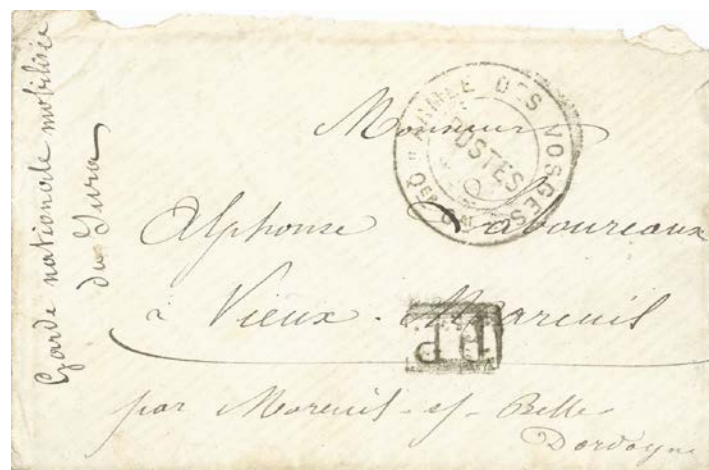 Garde nationale mobilisée
du Jura
ARMÉE DES VOSGES
POSTES
Qer Gal
Monsieur
Alphonse Laboureaux
à Vieux-Mareuil
PP
par Mareuil-s/-Belle
Dordogne